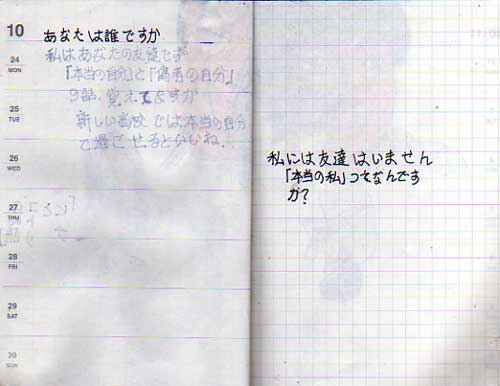 10
あなたは誰ですか
24
MON
私はあなたの友達です
「本当の自分」と「偽者の自分」
の話、覚えてますか
25
TUE
新しい学校では本当の自分
で過ごせるといいね。
26
WED
27
THU
28
FRI
29
SAT
30
SUN
私には友達はいません
「本当の私」ってなんです
か?